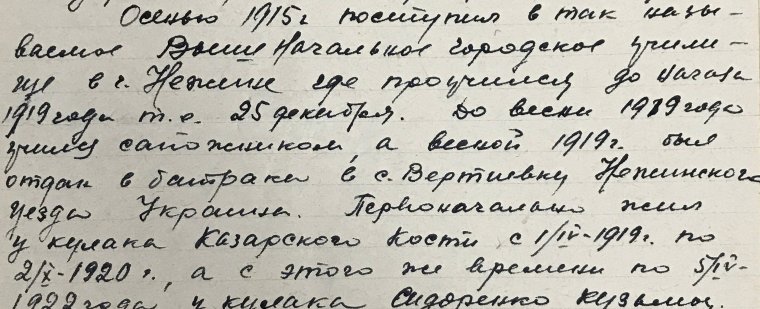 Осенью 1915г поступил в так назы-
ваемое Выше Начальное городское учили-
ще в г. Нежине где проучился до начала
1919 года т.е. 25 декабря. До весны 1919 года
учился сапожником, а весной 1919г. был
отдан в батраки в с. Вертиевку Нежинского
уезда Украина. Первоначально жил
у кулака Казарского Кости с 1/IV-1919г. по
2/X-1920 г., а с этого же времени по 5/IV-
1922 года у кулака Сидоренко Кузьмы.